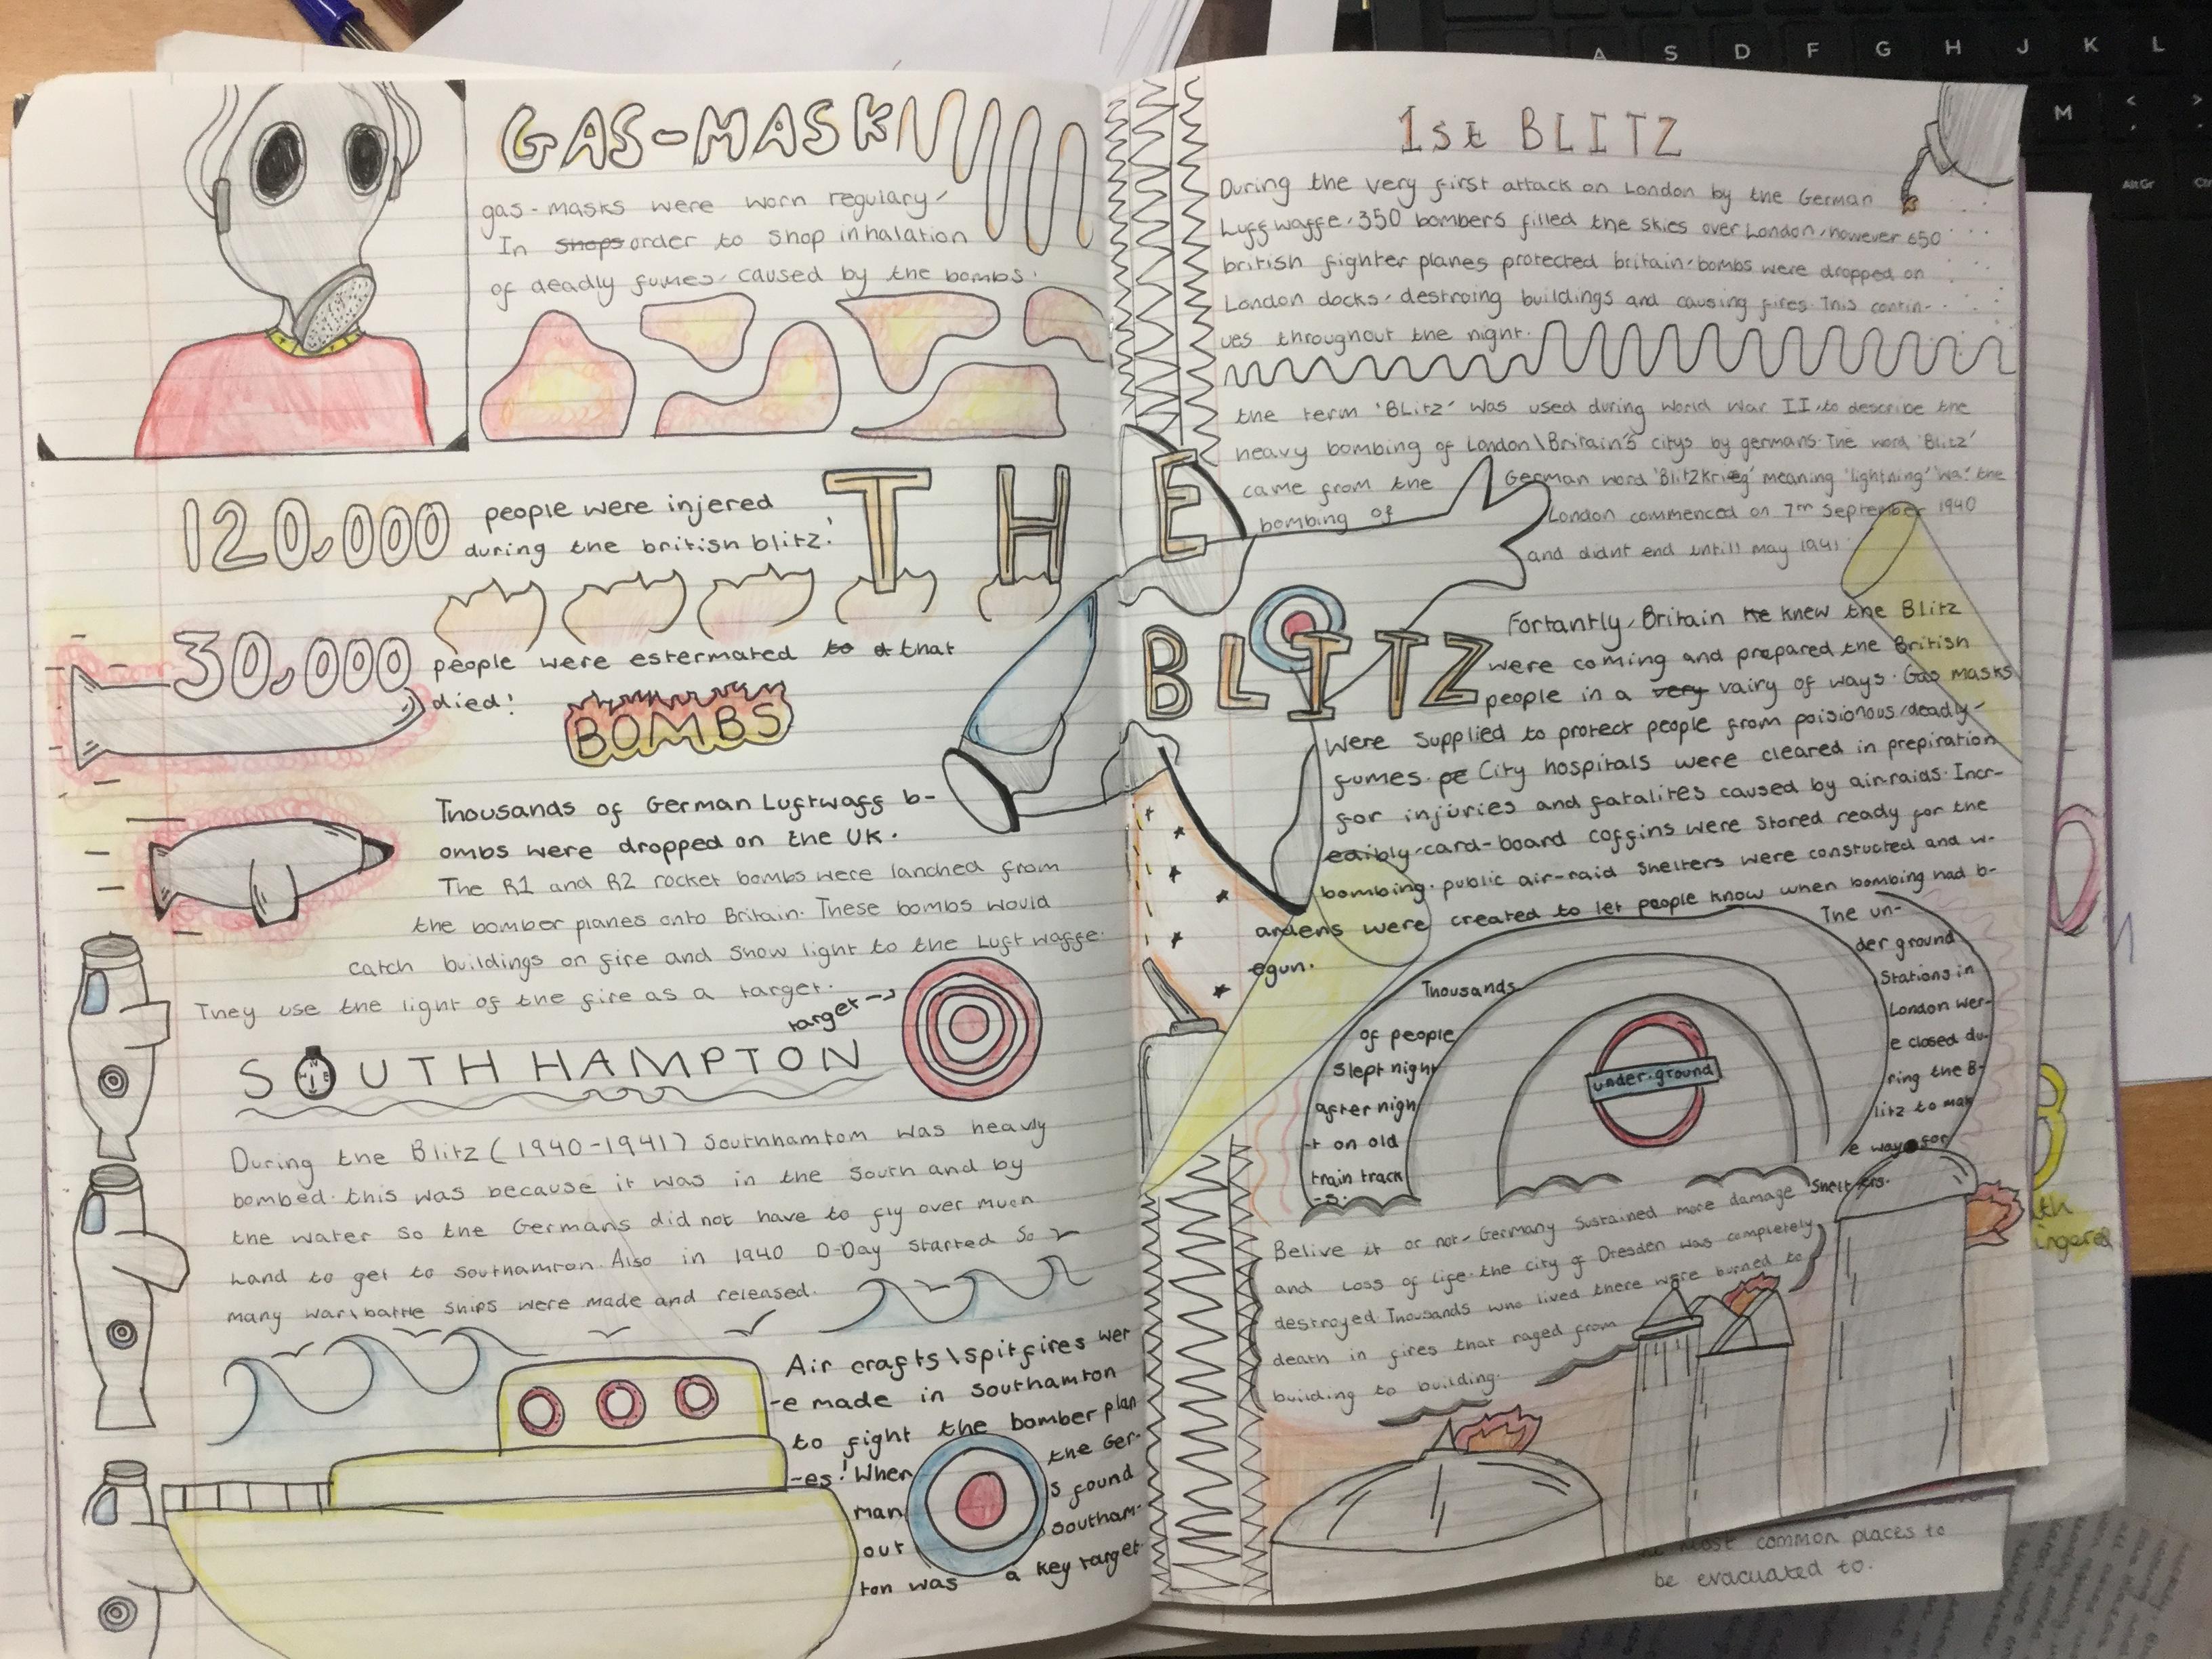 GAS-MASK
gas-masks were worn regulary,
In shops order to shop inhalation
of deadly fumes, caused by the bombs.
120,000 people were injered
during the british blitz!
30,000 people were estermated to a that
died!
BOMBS
Thousands of German Luftwaff b-
ombs were dropped on the UK.
The R1 and R2 rocket bombs were lanched from
the bomber planes onto Britain. These bombs would
catch buildings on fire and show light to the Luftwaffe.
They use the light of the fire as a target.
target →
SOUTH HAMPTON
During the Blitz (1940-1941) Southhamtom was heavly
bombed. this was because it was in the south and by
the water so the Germans did not have to fly over much
Land to get to Southamton. Also in 1940 D-Day started so
many war\battle ships were made and released.
Air crafts\spitfires wer
-e made in Southamton
to fight the bomber plan
-es! When the Ger-
man s found
out Southam-
ton was a key target.
THE
BLITZ
1st BLITZ
During the very first attack on London by the German
Luffwaffe, 350 bombers filled the skies over London, however 650
british fighter planes protected britain, bombs were dropped on
London docks, destroing buildings and causing fires. This contin-
ues throughout the night.
the term 'BLitz' was used during World War II, to describe the
heavy bombing of London\Britain's citys by germans. The word 'Blitz'
came from the German word 'Blitzkrieg' meaning 'lightning' wa. the
bombing of London commenced on 7th September 1940
and didnt end untill may 1941
Fortantly, Britain he knew the Blitz
were coming and prepared the British
people in a very vairy of ways. Gas masks
were supplied to protect people from poisionous/deadly-
fumes. pe City hospitals were cleared in prepiration
for injuries and fatalites caused by air-raids. Incr-
edibly, card-board coffins were stored ready for the
bombing. public air-raid shelters were constucted and w-
ardens were created to let people know when bombing had b-
egun.
Thousands
of people
slept night
after nigh
-t on old
train track
-s.
under-ground
The un-
der ground
Stations in
London wer-
e closed du-
ring the B-
litz to mak
e way for
shelters.
Belive it or not, Germany sustained more damage
and Loss of life. the city of Dresden was completely
destroyed. Thousands who lived there were burned to
death in fires that raged from
building to building.
most common places to
be evacuated to.
ingered
A S D F G H J K L
M < >
, .
Alt Gr